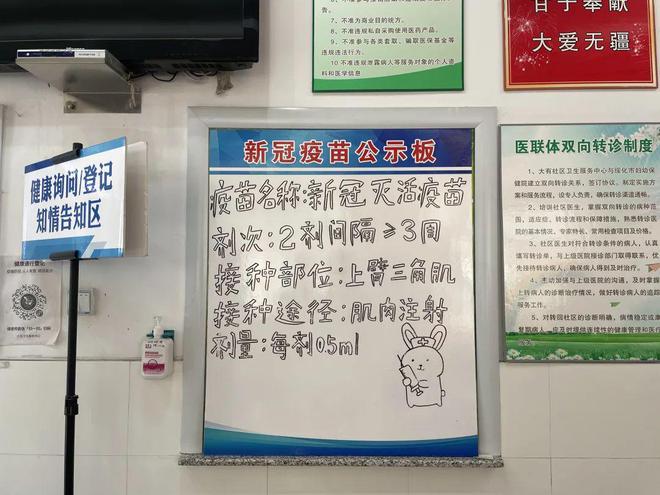 告。
7、不准为商业目的统方。
8、不准违规私自采购使用医药产品。
9、不准参与各类套取、骗取医保基金等
违规违法行为。
10、不准违规泄露病人等服务对象的个人资
料和医学信息
甘于奉献
大爱无疆
健康询问/登记
知情告知区
健康通行登记
新冠疫苗公示板
疫苗名称:新冠 灭活疫苗
剂次:2剂间隔≥3周
接种部位:上臂三角肌
接种途径:肌肉注射
剂量:每剂0.5ml
医联体双向转诊制度
1、大有社区卫生服务中心与绥化市妇幼保
健院建立双向转诊关系，签订协议。制定实施方
案和服务流程，设专人负责，确保转诊渠道通畅。
2、培训社区医生，掌握双向转诊的病种范
围，适应症、转诊流程和保障措施，熟悉转诊医院
的基本情况、专家特长、常用检查项目及价格。
3、社区医生对符合转诊条件的病人，认真
填写转诊单，与上级医院接诊部门取得联系，优
先接待转诊病人，确保病人得到及时治疗。
4、主动加强与上级医院的沟通，及时掌握
上转病人的诊断治疗情况，做好转诊病人的追踪
服务工作。
5、对转回社区的诊断明确，病情稳定或康
复期病人，应及时提供连续性的健康管理和医疗